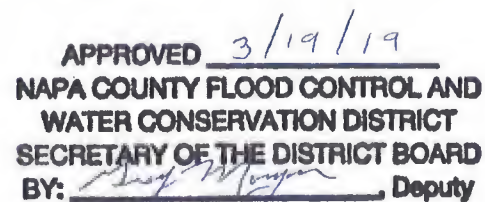 APPROVED 3/19/19
NAPA COUNTY FLOOD CONTROL AND
WATER CONSERVATION DISTRICT
SECRETARY OF THE DISTRICT BOARD
BY: , Deputy